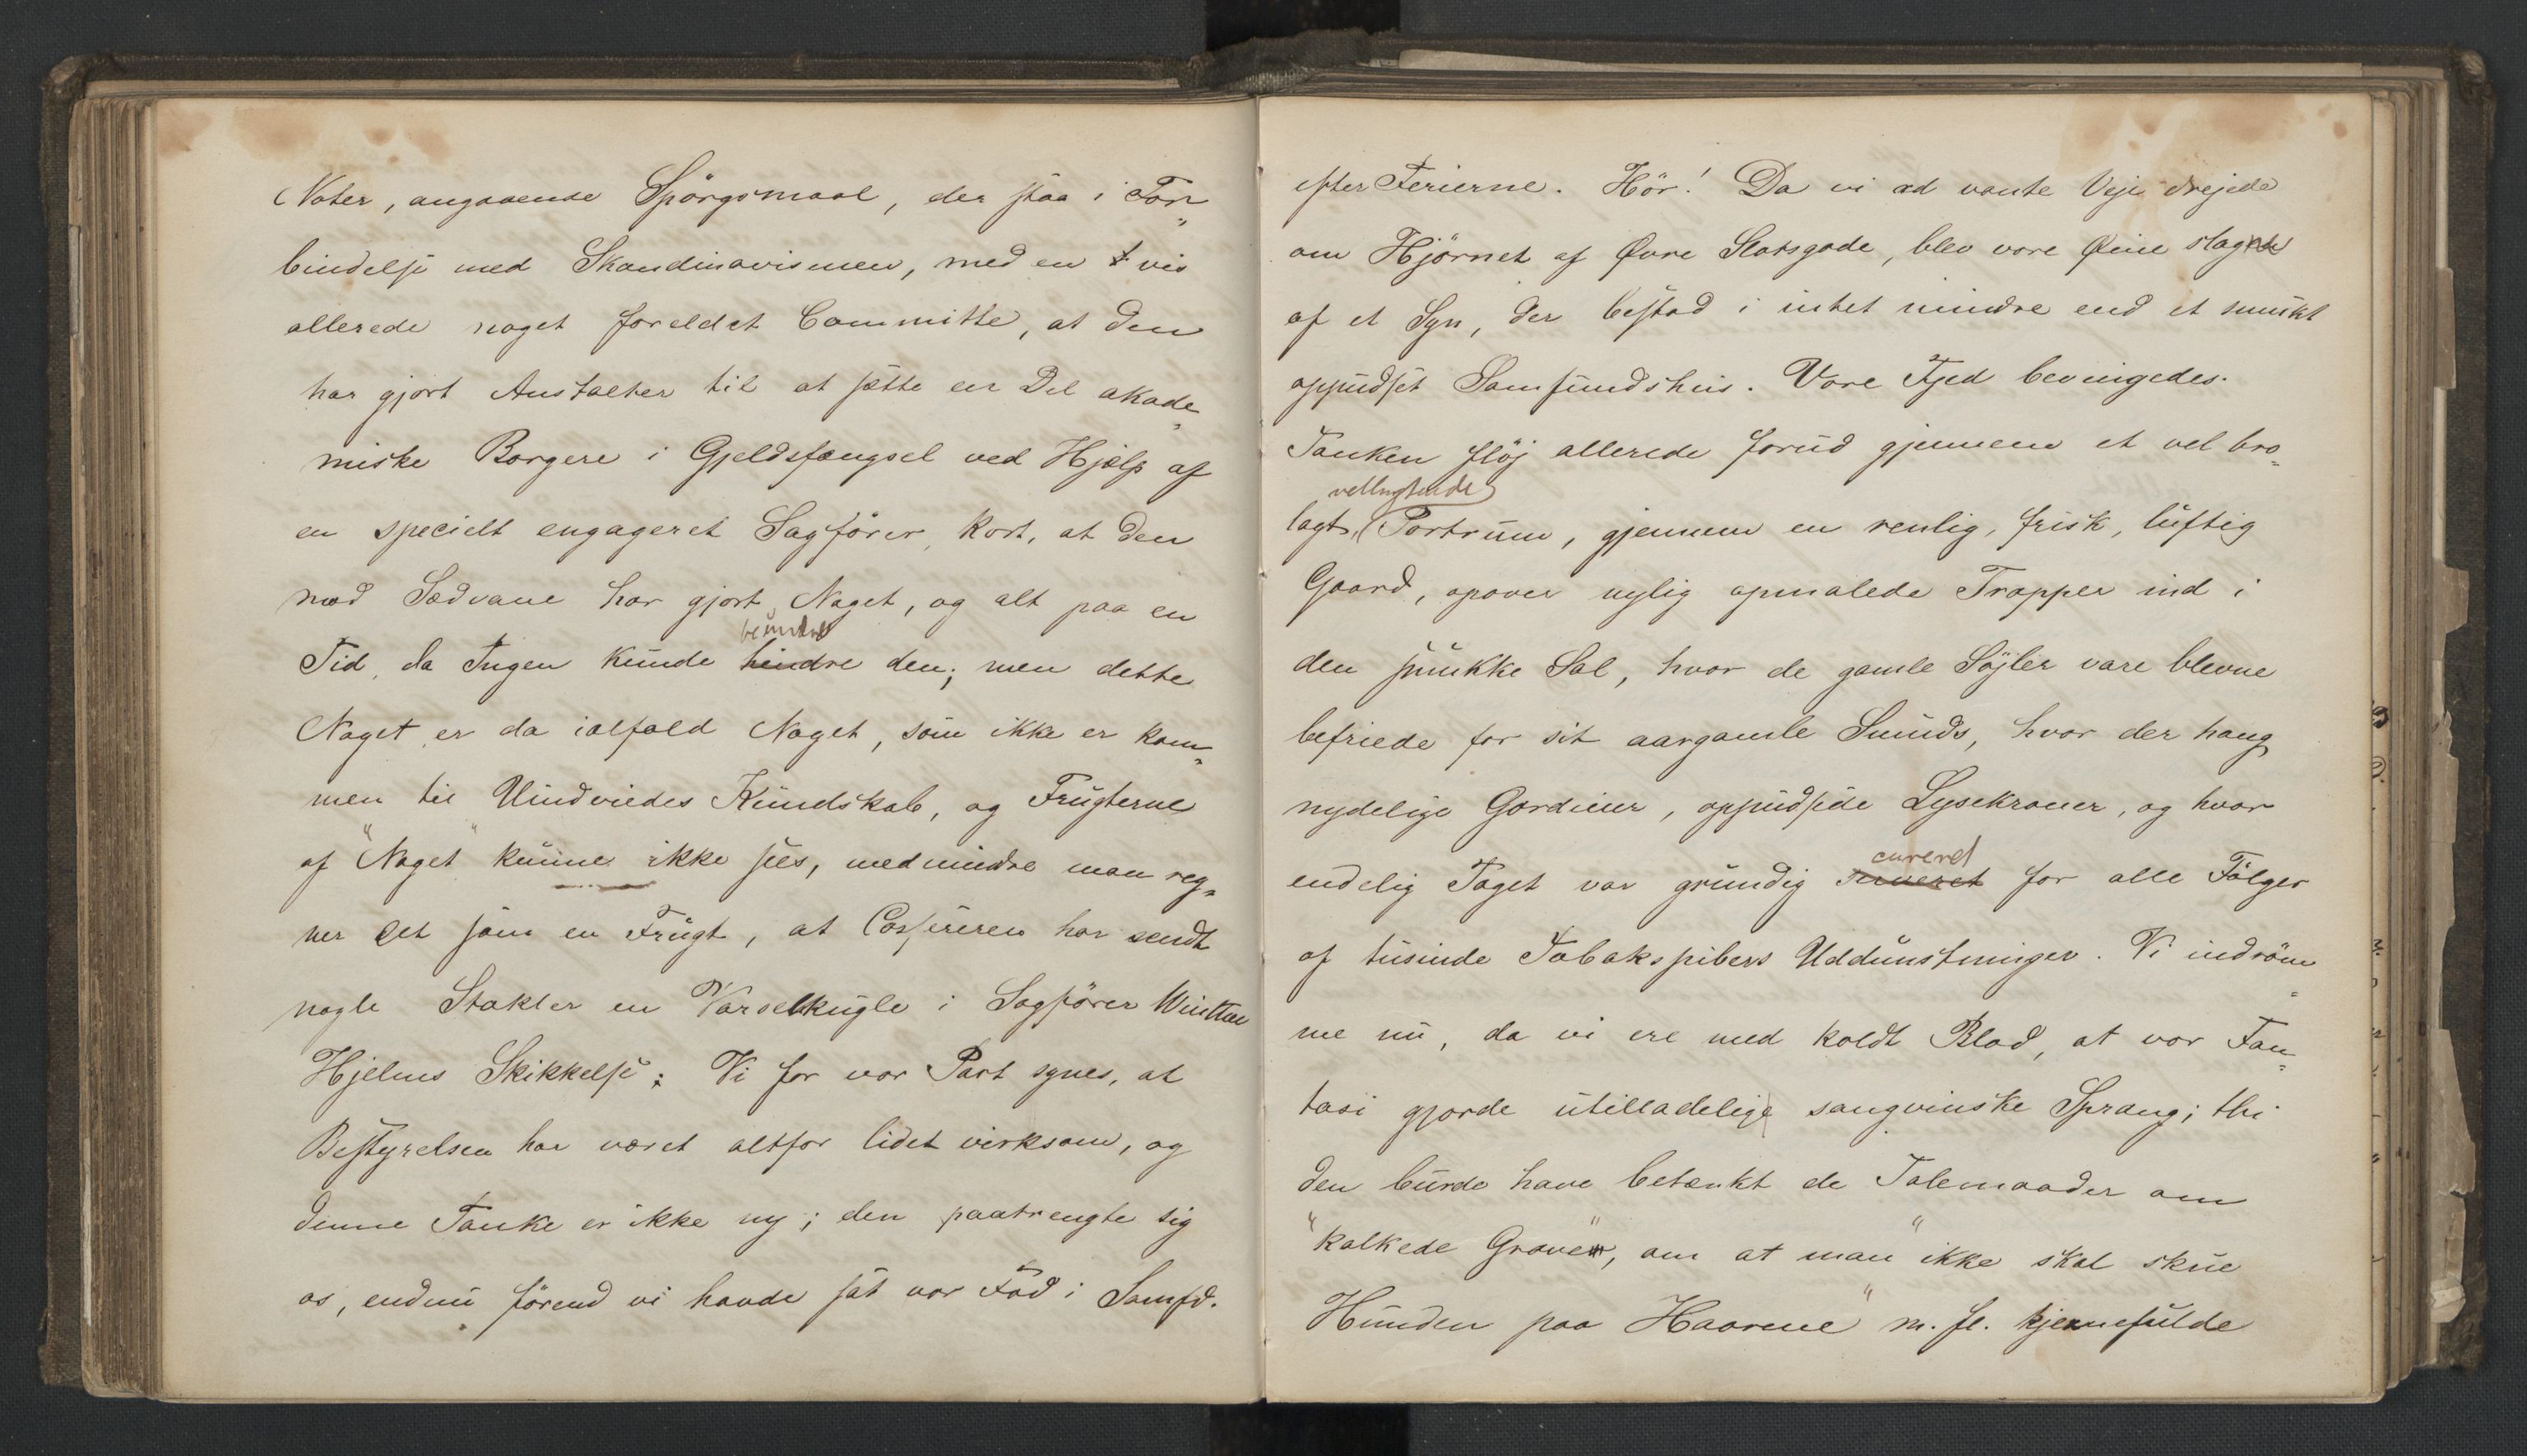 Noter, angaaende Spörgsmaal, der staa i For„
bindelse med Skandinavismen, med en vis
allerede noget foreldet Committe, at den
har gjort Anstalter til at sætte en Del akade„
miske Borgere i Gjeldsfængsel ved Hjælp af
en specielt engageret Sagförer, kort, at den
mod Sædvane har gjort Noget, og alt paa en
beundre
Tid, da Ingen kunde hindre den; men dette
Noget er da ialfald Noget, som ikke er kom„
men til Uindviedes Kundskab, og Frugterne
af "Noget" kunne ikke sees, medmindre man reg„
ner det som en Frugt, at Cassereren har sendt
nogle Stakler en Varselkugle i Sagförer Winter
Hjelms Skikkelse: Vi for vor Part synes, at
Bestyrelsen har været altfor lidet virksom, og
denne Tanke er ikke ny; den paatrengte sig
os, endnu förend vi havde sat vor Fod i Samfd.
efter Ferierne. Hör! Da vi ad vante Veje drejede
om Hjörnet af Øvre Slotsgade, blev vore Øine slagne
af et Syn, der bestod i intet mindre end et smukt
oppudset Samfundshus. Vore Fjed bevingedes.
Tanken flöj allerede forud gjennem et vel bro„
vellugtende
lagt, Portrum, gjennem en renlig, frisk, luftig
Gaard, opover nylig opmalede Trapper ind i
den smukke Sal, hvor de gamle Söjler vare blevne
befriede for sit aargamle Smuds, hvor der hang
nydelige Gardiner, oppudsede Lysekroner, og hvor
cureret
endelig Taget var grundig for alle Fölger
af tusinde Tobakspibers Uddunstninger. Vi indröm„
me nu, da vi ere med koldt Blod, at vor Fan„
tasi gjorde utilladelige sangvinske Sprang; thi
den burde have betænkt de Talemaader om
"kalkede Grave", om at man "ikke skal skue
Hunden paa Haarene" m. fl. kjernefulde